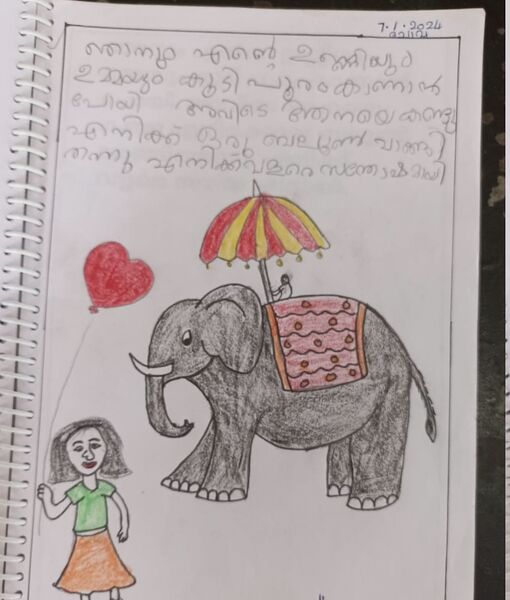 7.1.2024
ഞായർ
ഞാനും എൻ്റെ ഉണ്ണിയും
ഉമ്മയും കൂടി പൂരം കാണാൻ
പോയി അവിടെ ആനയെ കണ്ടു
എനിക്ക് ഒരു ബലൂൺ വാങ്ങി
തന്നു എനിക്ക് വളരെ സന്തോഷമായി